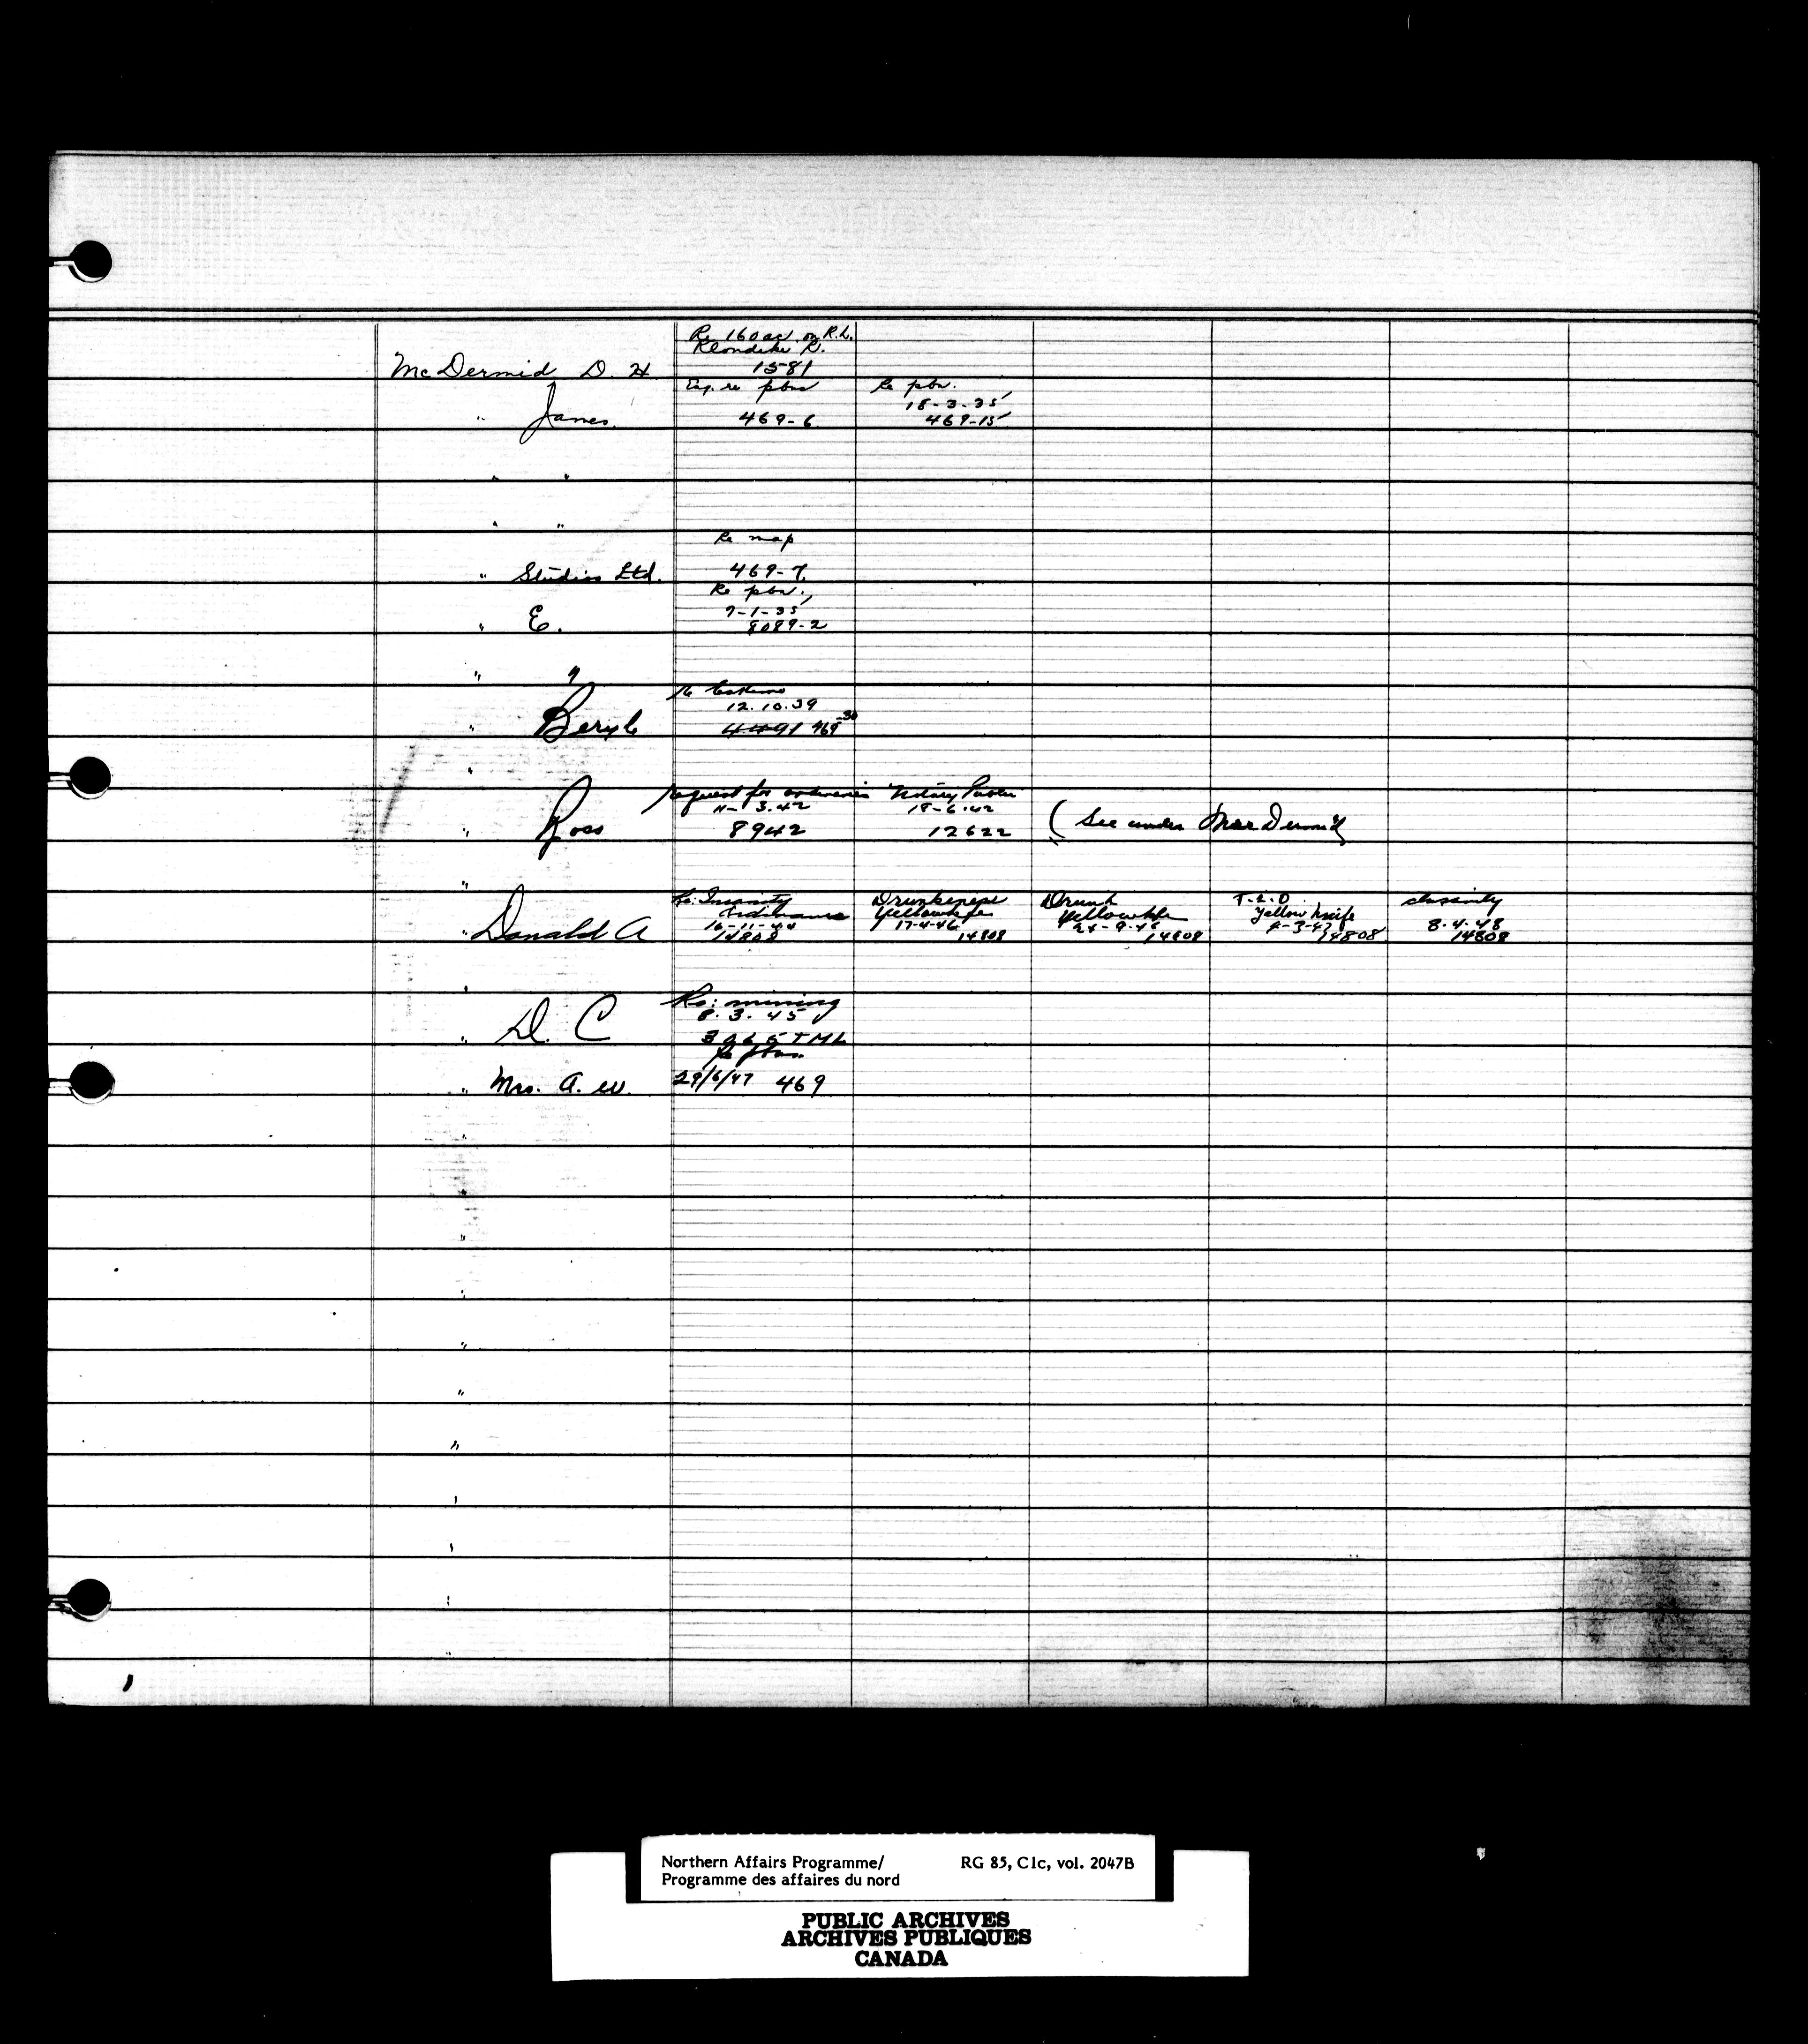 Re 160 ac. on R.L.
Klondike R.
McDermid D. H 1581
Enq. re pbns Re pbn.
18-3-35
" James. 469-6 469-15
" "
" "
Re map
" Studios Ltd. 469-7
Re pbn.,
7-1-35
" E. 8089-2
" "
Re Eskimo
12.10.39
" Beryl 4491 469-30
"
Request for ordinances Notary Public
11-3.42 18-6-42
" Ross 8942 12622 (See under MacDermid)
"
Re: Insanity Drunk Yellowknife T.L.O.
Ordinance Yellowknife Yellowknife
16-11-44 17-4-46 8.4.48
" Donald A 14808 14808 14808 14808 14808
"
Re: mining
8.3.45
" D. C
Re pbns.
" Mrs. A. W. 29/6/47 469
"
"
"
"
"
"
"
"
"
"
"
Northern Affairs Programme/ RG 85, C1c, vol. 2047B
Programme des affaires du nord
PUBLIC ARCHIVES
ARCHIVES PUBLIQUES
CANADA